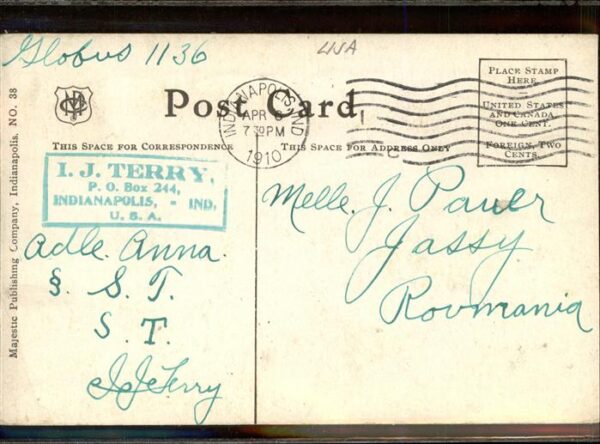 Globus 1136
USA
Post Card.
INDIANAPOLIS, IND.
APR 6
7 30 PM
1910
PLACE STAMP
HERE
UNITED STATES
AND CANADA
ONE CENT.
FOREIGN, TWO
CENTS.
THIS SPACE FOR CORRESPONDENCE
THIS SPACE FOR ADDRESS ONLY
I. J. TERRY,
P. O. Box 244,
INDIANAPOLIS, - IND,
U. S. A.
Adle. Anna.
§. S. T.
S. T.
I J Terry
Melle. J. Pauer
Jassy
Roumania
Majestic Publishing Company, Indianapolis. NO. 38